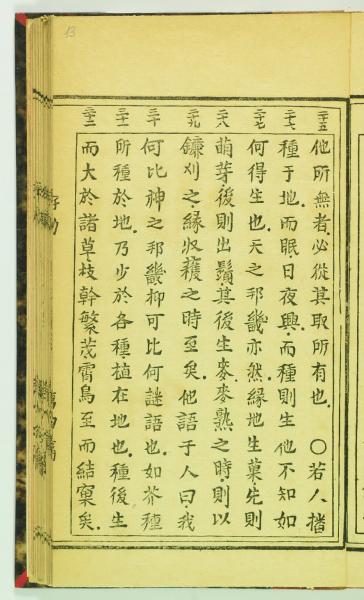 13
二十五 他所無者必從其取所有也。〇若人播
二十六 種于地而眠日夜興而種則生他不知如
二十七 何得生也天之邦畿亦然緣地生菓先則
二十八 萌芽後則出鬚其後生麥麥熟之時則以
二十九 鐮刈之緣收穫之時至矣他語于人曰我
三十 何比神之邦畿抑可比何謎語也如芥種
三十一 所種於地乃少於各種植在地也種後生
三十二 而大於諸草枝幹繁茂霄鳥至而結窠矣